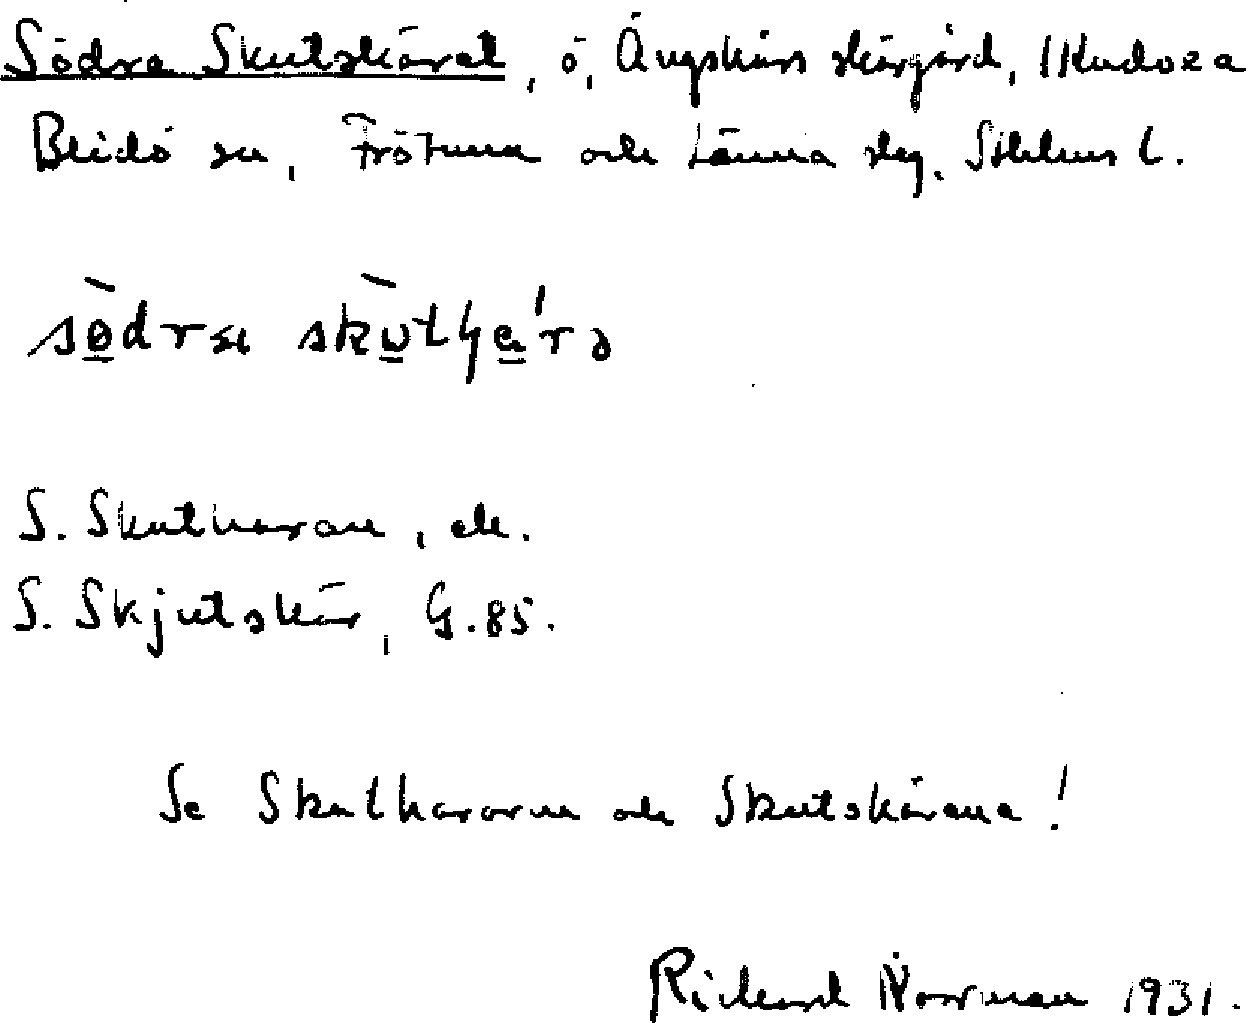 Södra Skutskäret, ö, Ängskärs skärgård,
Blidö sn, Frötuna och Länna skg. Sthlms l.
S. Skutharan, ek.
S. Skjutskär, G.85.
Se Skuthararna och Skutskärena!
Rickard Norrman 1931.